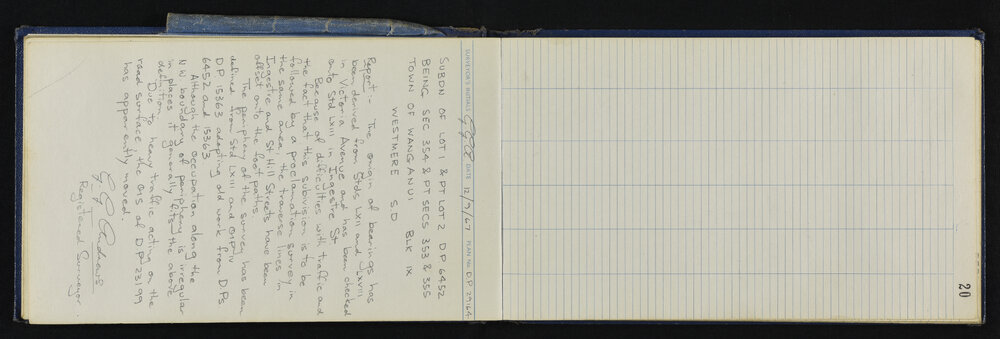 SURVEYOR INITIALS G.G.A. DATE 12/9/67 PLAN No. D.P. 29164
SUBDN OF LOT 1 & PT LOT 2 DP 6452
BEING SEC 354 & PT SECS 353 & 355
TOWN OF WANGANUI BLK IX
WESTMERE S.D
Report:- The origin of bearings has
been derived from Stds LXII and LXVII
in Victoria Avenue and has been checked
onto Std LXIII in Ingestre St
Because of difficulties with traffic and
the fact that this subdivision is to be
followed by a proclamation survey in
the same area, the traverse lines in
Ingestre and St Hill Streets have been
offset onto the foot paths.
The periphery of the survey has been
defined from Std LXIII and
DP 15363 adopting old work from DPs
6452 and 15363
Although the occupation along the
N.W boundary of periphery is irregular
in places it generally fits the above
definition.
Due to heavy traffic acting on the
road surface, the of DP 23199
has apparently moved.
G. G. Andrews
Registered Surveyor.
20